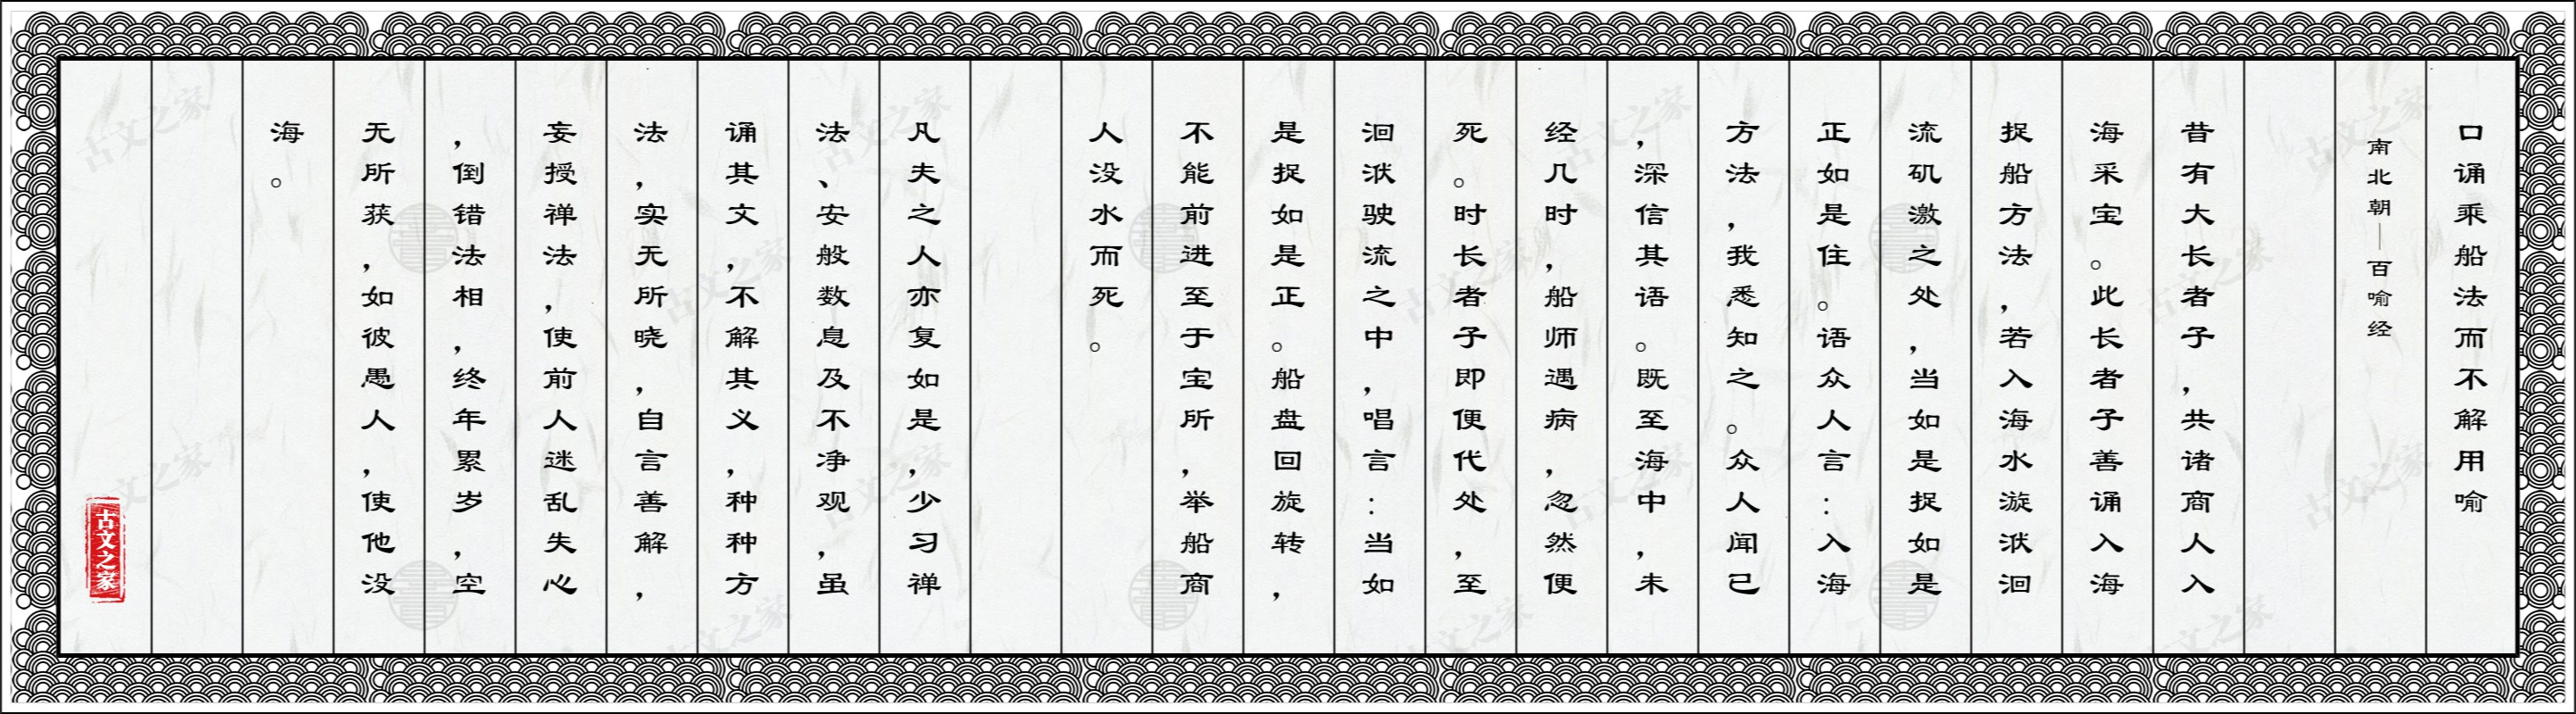 口诵乘船法而不解用喻
南北朝—百喻经
昔有大长者子，共诸商人入
海采宝。此长者子善诵入海
捉船方法，若入海水漩洑洄
流矶激之处，当如是捉如是
正如是住。语众人言：入海
方法，我悉知之。众人闻已
，深信其语。既至海中，未
经几时，船师遇病，忽然便
死。时长者子即便代处，至
洄洑驶流之中，唱言：当如
是捉如是正。船盘回旋转，
不能前进至于宝所，举船商
人没水而死。
凡夫之人亦复如是，少习禅
法、安般数息及不净观，虽
诵其文，不解其义，种种方
法，实无所晓，自言善解，
妄授禅法，使前人迷乱失心
，倒错法相，终年累岁，空
无所获，如彼愚人，使他没
海。
古文之家